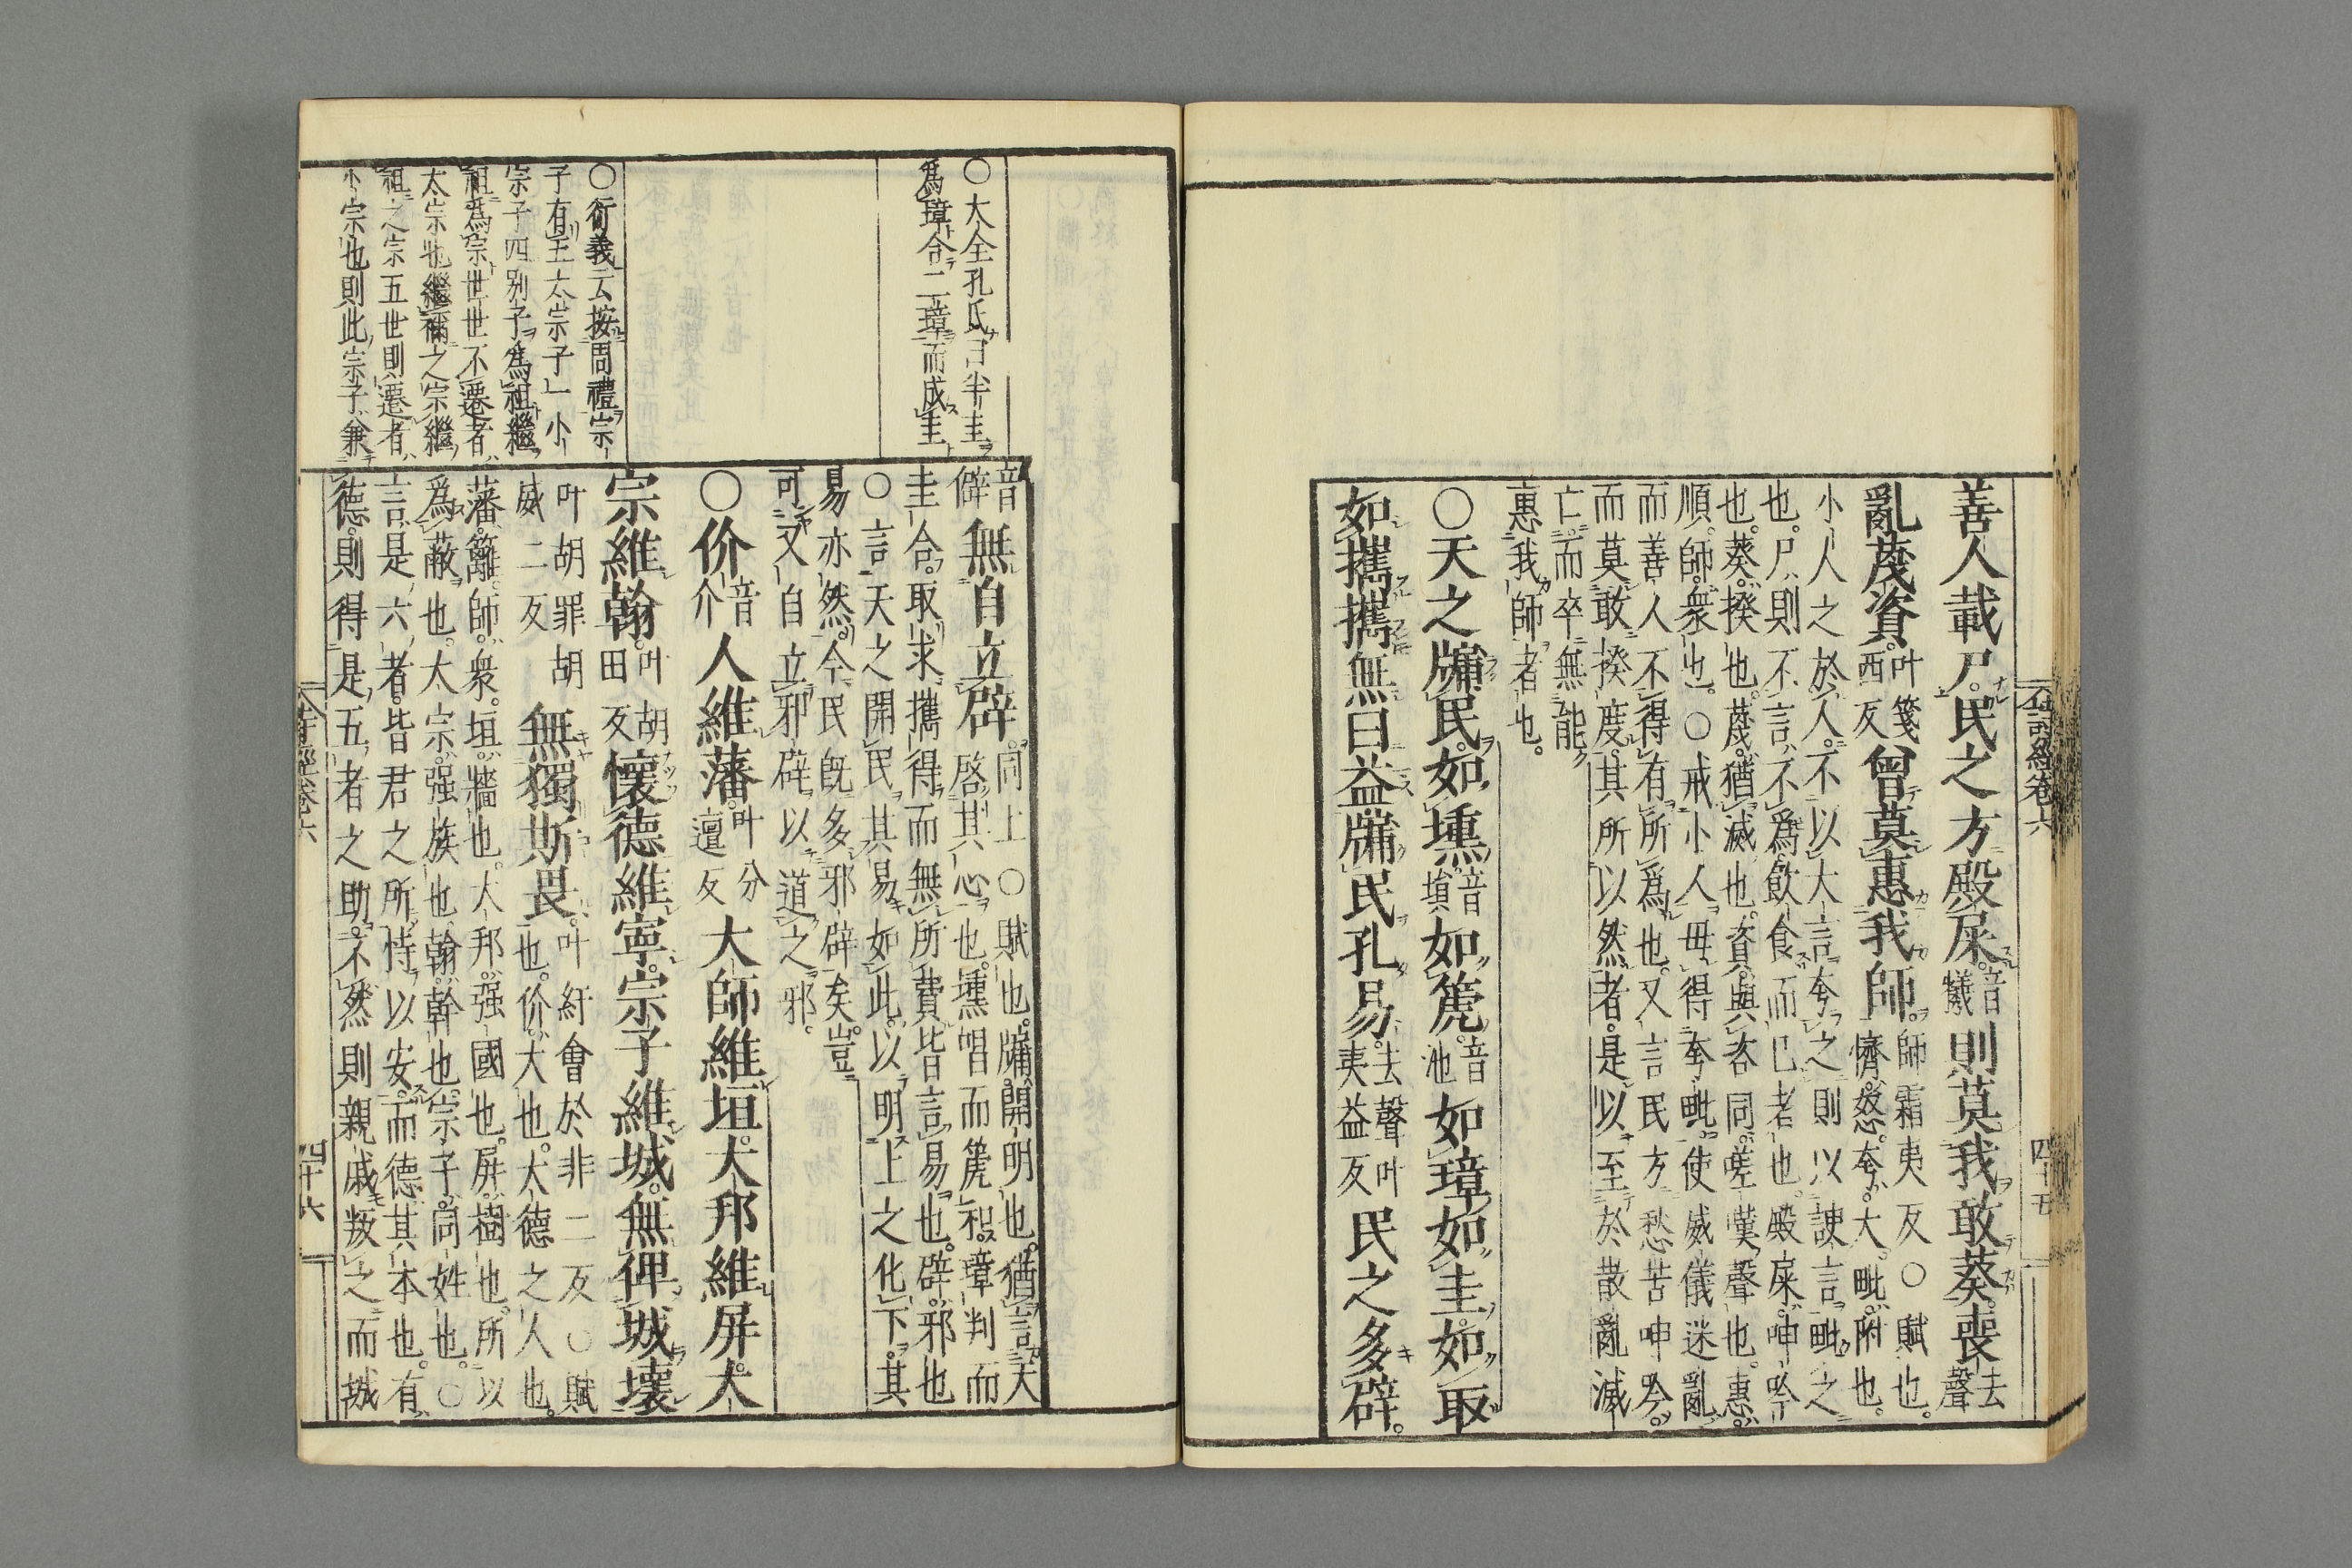 詩經卷六
四十五
善人載尸民之方殿屎音犧則莫我敢葵喪去聲
亂蔑資叶箋西反曾莫惠我師師霜夷反○賦也
懠怒夸大毗附也
小人之於人不以大言夸之則以諛言毗之
也尸則不言不爲飲食而已者也殿屎呻吟
也葵揆也蔑猶滅也資與咨同嗟嘆聲也惠
順師衆也○戒小人毋得夸毗使威儀迷亂
而善人不得有所爲也又言民方愁苦呻吟
而莫敢揆度其所以然者是以至於散亂滅
亡而卒無能
惠我師者也
○天之牖民如壎音塤如篪音池如璋如圭如取
如攜攜無曰益牖民孔易去聲叶夷益反民之多辟
○大全孔氏曰半圭
爲璋合二璋而成圭
音僻無自立辟同上○賦也牖開明也猶言天
啓其心也壎唱而篪和璋判而
圭合取求攜得而無所費皆言易也辟邪也
○言天之開民其易如此以明上之化下其
易亦然今民旣多邪辟矣豈
可又自立邪辟以道之邪
○衍義云按周禮宗
子有五太宗子一小
宗子四別子爲祖繼
祖爲宗世世不遷者
太宗也繼禰之宗繼
祖之宗五世則遷者
小宗也則此宗子兼
○价音介人維藩叶分邅反大師維垣大邦維屏大
宗維翰叶胡田反懷德維寧宗子維城無俾城壞
叶胡罪胡威二反無獨斯畏叶紆會於非二反○賦
也价大也大德之人也
藩籬師衆垣牆也大邦强國也屏樹也所以
爲蔽也大宗强族也翰幹也宗子同姓也○
言是六者皆君之所恃以安而德其本也有
德則得是五者之助不然則親戚叛之而城
詩經卷六
四十六